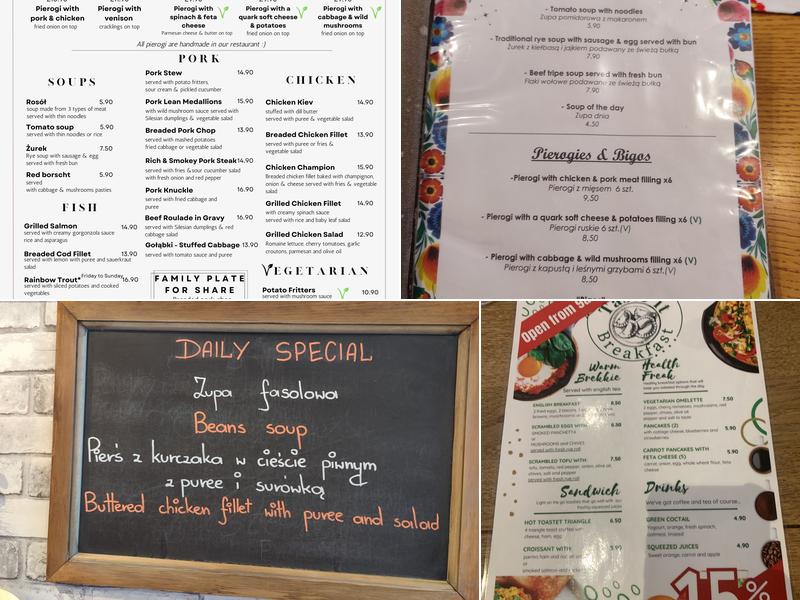 Pierogi with
pork & chicken
fried onion on top
Pierogi with
venison
cracklings on top
Pierogi with
spinach & feta
cheese
Parmesan cheese & butter on top
Pierogi with a
quark soft cheese
& potatoes
fried onion on top
Pierogi with
cabbage & wild
mushrooms
fried onion on top
All pierogi are handmade in our restaurant :)
SOUPS
Rosół 5.90
soup made from 3 types of meat
served with thin noodles
Tomato soup 5.90
served with thin noodles or rice
Żurek 7.50
Rye soup with sausage & egg
served with fresh bun
Red borscht 5.90
served
with cabbage & mushrooms pasties
FISH
Grilled Salmon 14.90
served with creamy gorgonzola sauce
rice and asparagus
Breaded Cod Fillet 13.90
served with lemon with puree and sauerkraut
salad
Rainbow Trout* Friday to Sunday 16.90
served with sliced potatoes and cooked
vegetables
PORK
Pork Stew 14.90
served with potato fritters,
sour cream & pickled cucumber
Pork Lean Medallions 15.90
with wild mushroom sauce served with
Silesian dumplings & vegetable salad
Breaded Pork Chop 13.90
served with mashed potatoes
fried cabbage or vegetable salad
Rich & Smokey Pork Steak 14.90
served with fries & sour cucumber salad
with fresh onion and red pepper
Pork Knuckle 16.90
served with fried cabbage and
puree
Beef Roulade in Gravy 16.90
served with Silesian dumplings & red
cabbage salad
Gołąbki - Stuffed Cabbage 13.90
served with tomato sauce and puree
FAMILY PLATE
FOR SHARE
CHICKEN
Chicken Kiev 14.90
stuffed with dill butter
served with puree & vegetable salad
Breaded Chicken Fillet 13.90
served with puree or fries &
vegetable salad
Chicken Champion 15.90
Breaded chicken fillet baked with champignon,
onion & cheese served with fries & vegetable
salad
Grilled Chicken Fillet 14.90
with creamy spinach sauce
served with rice and baby leaf salad
Grilled Chicken Salad 12.90
Romaine lettuce, cherry tomatoes, garlic
croutons, parmesan and olive oil
VEGETARIAN
Potato Fritters 10.90
served with mushroom sauce
- Tomato soup with noodles
Zupa pomidorowa z makaronem
5,90
- Traditional rye soup with sausage & egg served with bun
Żurek z kiełbasą i jajkiem podawany ze świeżą bułką
7,90
- Beef tripe soup served with fresh bun
Flaki wołowe podawane ze świeżą bułką
7,90
- Soup of the day
Zupa dnia
4,50
Pierogies & Bigos
-Pierogi with chicken & pork meat filling x6
Pierogi z mięsem 6 szt.
9,50
- Pierogi with a quark soft cheese & potatoes filling x6 (V)
Pierogi ruskie 6 szt.(V)
8,50
- Pierogi with cabbage & wild mushrooms filling x6 (V)
Pierogi z kapustą i leśnymi grzybami 6 szt.(V)
8,50
DAILY SPECIAL
Zupa fasolowa
Beans soup
Pierś z kurczaka w cieście piwnym
z puree i surówką
Buttered chicken fillet with puree and salad
Open from
Breakfast
Warm
Brekkie
Served with english tea
ENGLISH BREAKFAST 8.50
SCRAMBLED EGGS WITH 6.50
SMOKED PANCHETTA
or
MUSHROOMS and CHIVES
served with fresh rye roll
SCRAMBLED TOFU WITH 7.50
tofu, tomato, red pepper, onion, olive oil,
chives, salt and pepper
served with fresh rye roll
Sandwich
HOT TOASTET TRIANGLE 6.50
4 triangle toast stuffed with
cheese, ham, egg
CROISSANT WITH 5.90
or
Health
Freak
Healthy breakfast options that will
VEGETARIAN OMELETTE 7.50
2 eggs, cherry tomatoes, mushrooms, red
pepper, chives, olive oil
pepper and salt to taste
PANCAKES (2) 5.90
with cottage cheese, blueberries and
strawberries
CARROT PANCAKES WITH 5.90
FETA CHEESE (5)
carrot, onion, egg, whole wheat flour, feta
cheese
Drinks
We've got coffee and tea of course...
GREEN COCTAIL 4.90
Yogourt, orange, fresh spinach,
oatmeal, linseed
SQUEEZED JUICES 4.90
Sweet orange, carrot and apple
15%